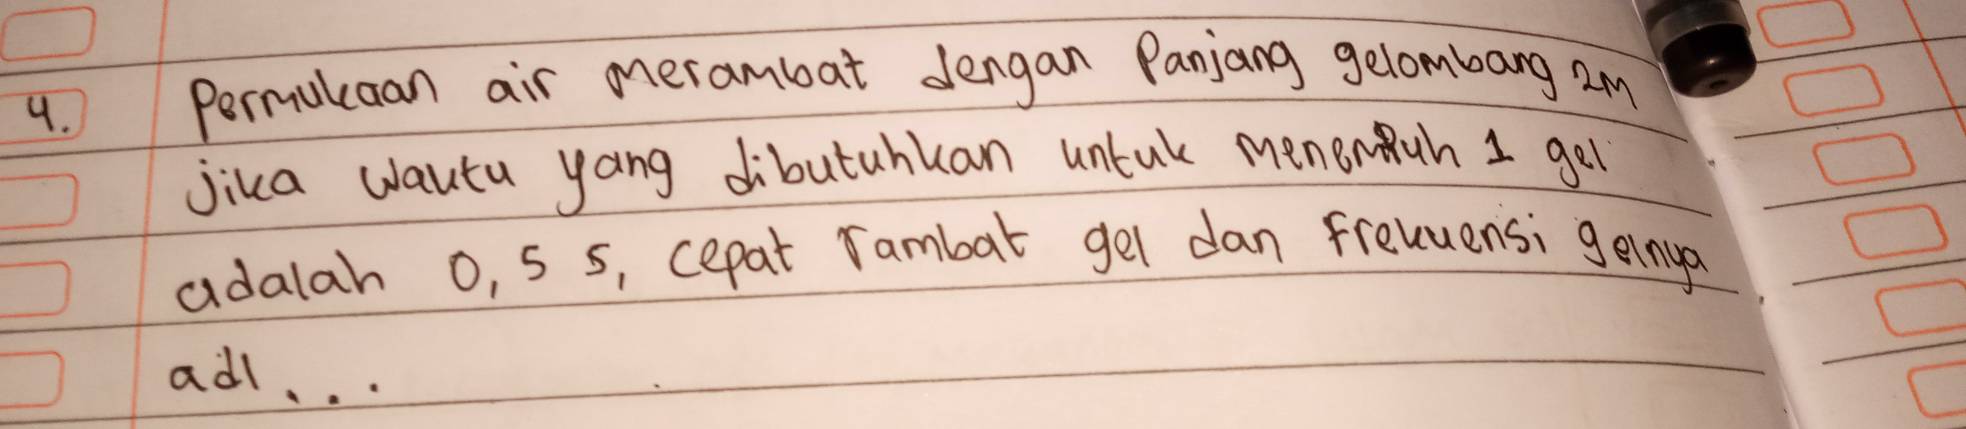 4. Permukaan air merambat dengan Panjang gelombang 2m
jika waktu yang dibutuhkan untuk menempuh 1 gel
adalah 0,5 s, cepat rambat gel dan Frekuensi gelnya
adl...